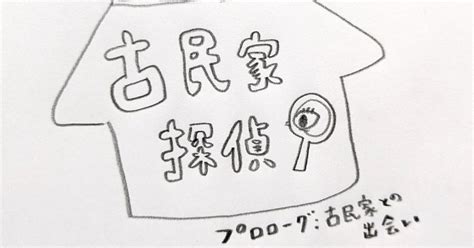 古民家
探偵
プロローグ:古民家との
出会い